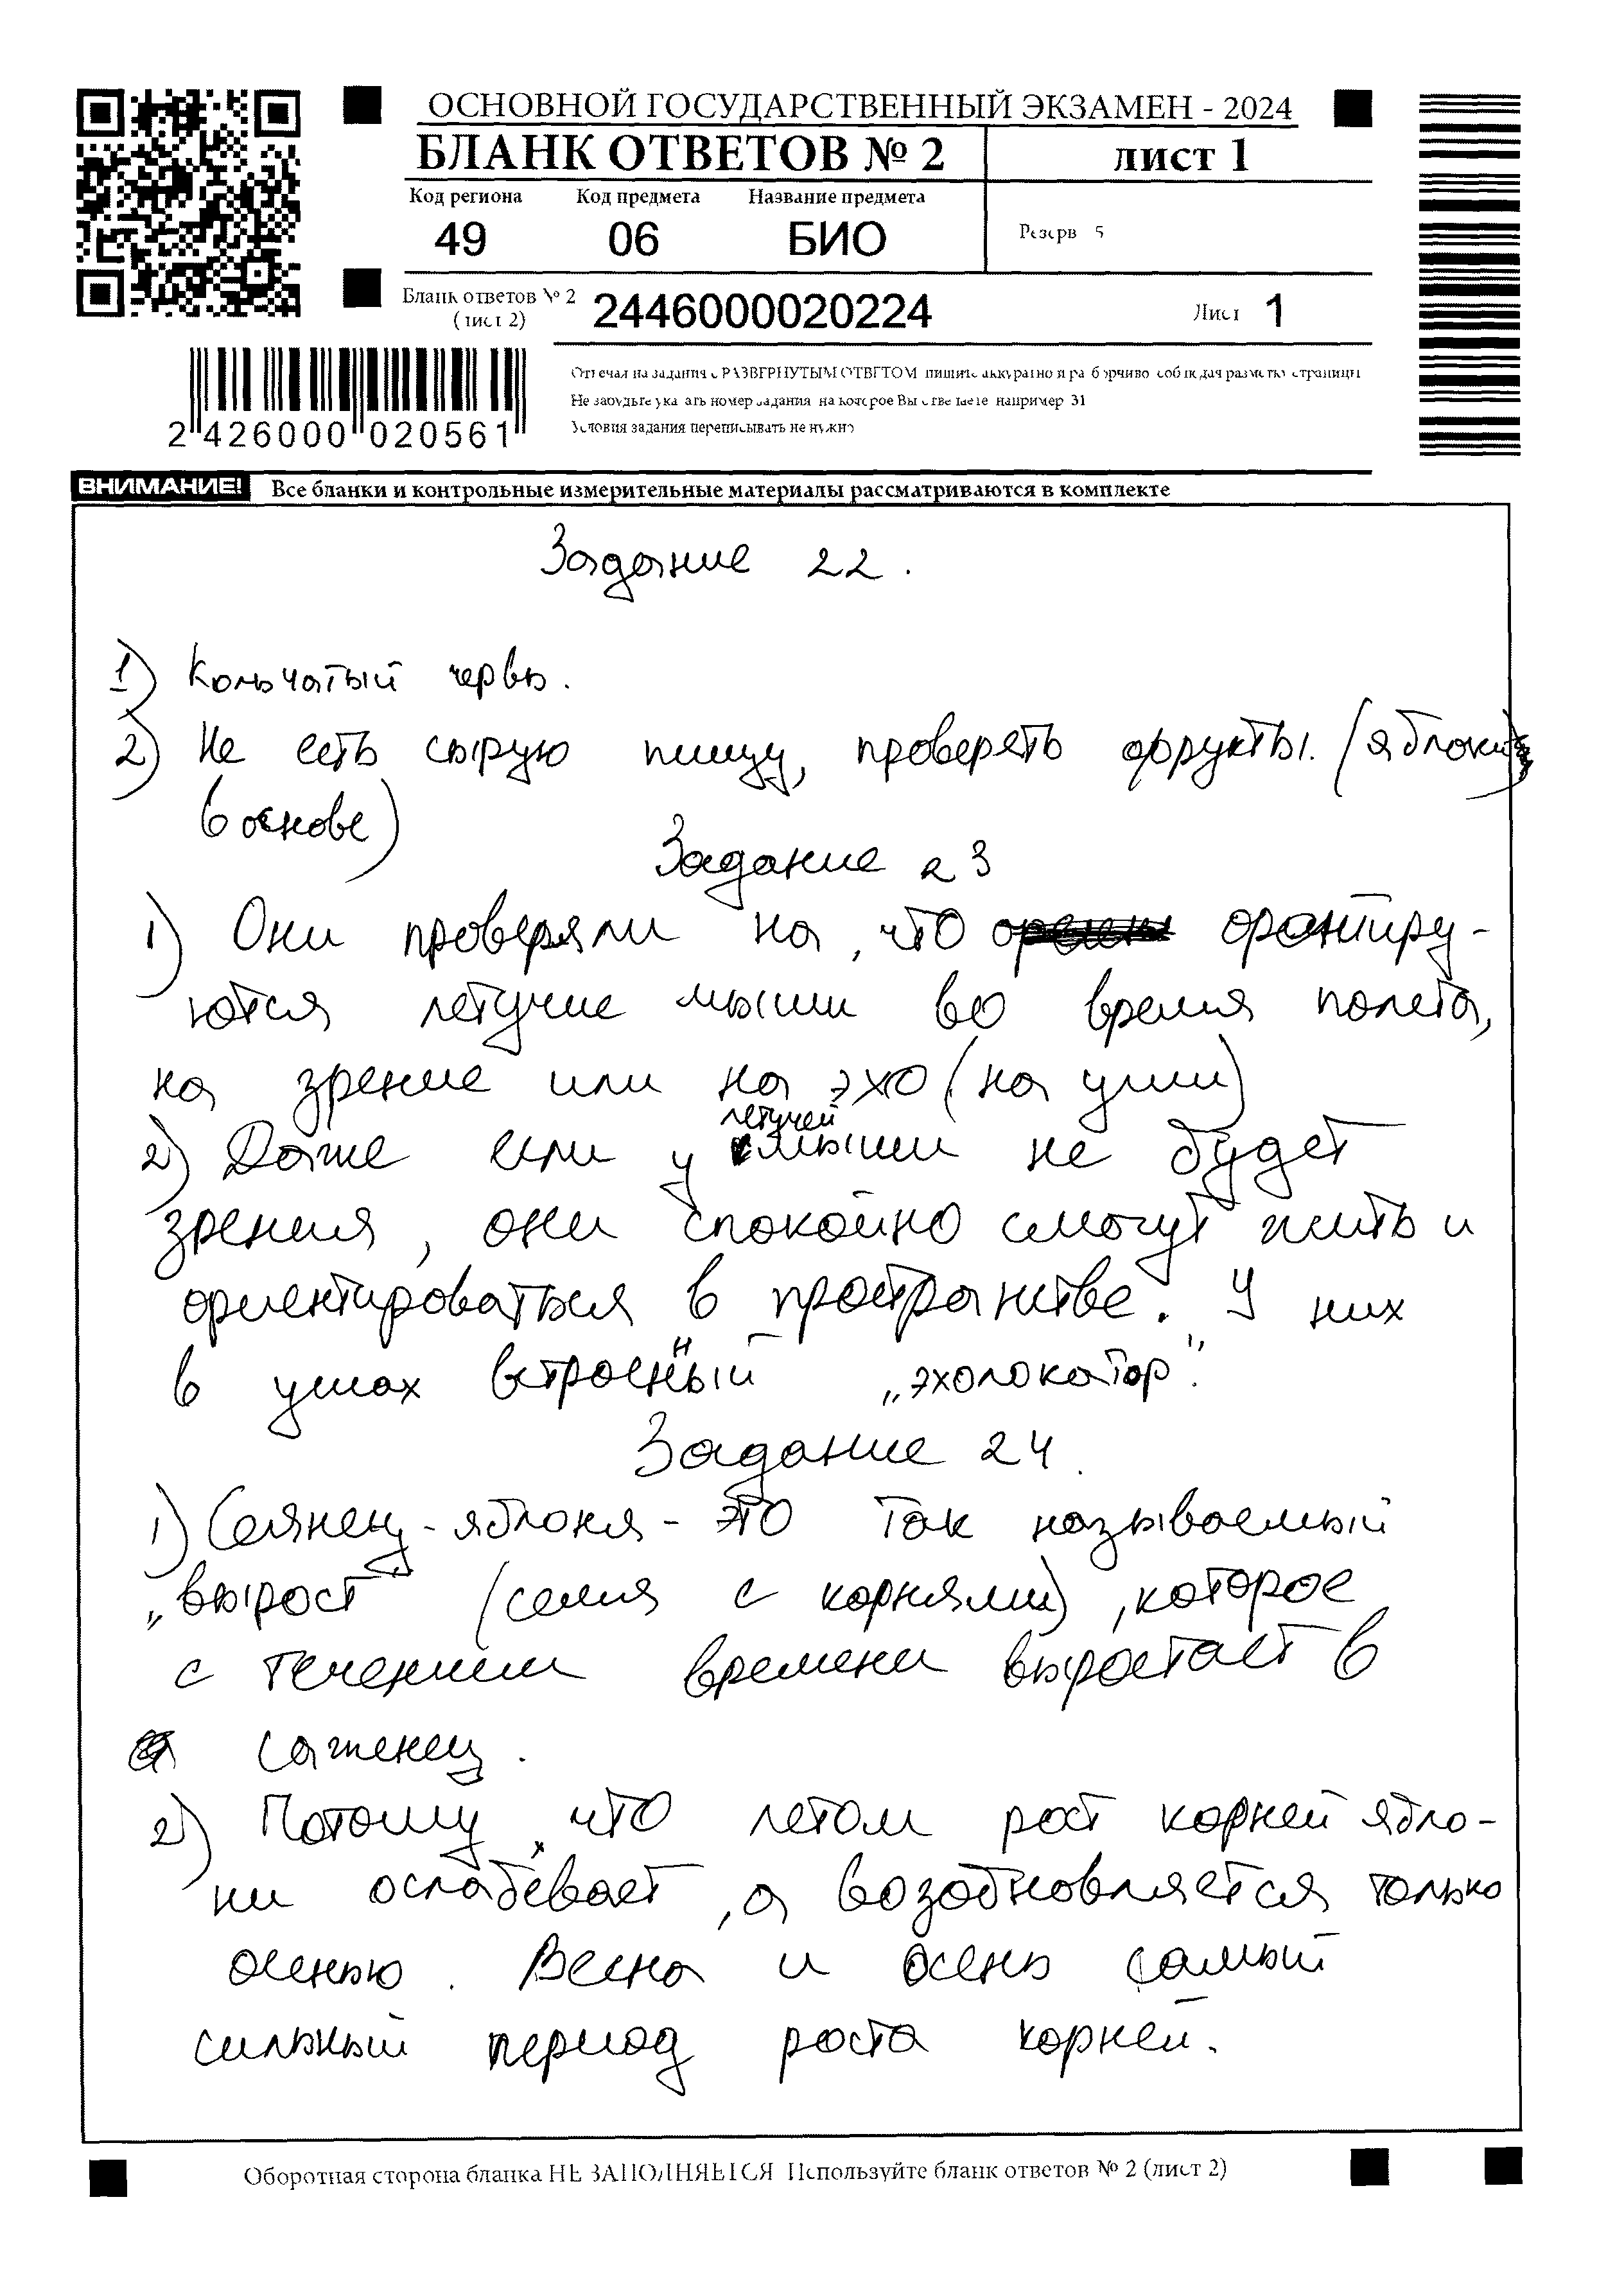 ОСНОВНОЙ ГОСУДАРСТВЕННЫЙ ЭКЗАМЕН - 2024
БЛАНК ОТВЕТОВ № 2
лист 1
Код региона Код предмета Название предмета
49 06 БИО
Резерв 5
Бланк ответов № 2
(лист 2)
2446000020224
Лист 1
2 426000 020561
Отвечая на задания с РАЗВЕРНУТЫМ ОТВЕТОМ пишите аккуратно и разборчиво соблюдая разметку страницы
Не забудьте указать номер задания на которое Вы отвечаете например 31
Условия задания переписывать не нужно
ВНИМАНИЕ! Все бланки и контрольные измерительные материалы рассматриваются в комплекте
Задание 22.
1) Кольчатый червь.
2) Не есть сырую пищу, провереть фрукты. (яблоки
в основе)
Задание 23
1) Они проверяли на, что орантиру-
ются летучие мыши во время полета,
на зрение или на эхо (на уши)
2) Даже если у летучей мыши не будет
зрения, они спокойно смогут жить и
ориентироваться в пространстве. У них
в ушах встроенный „эхолокатор".
Задание 24.
1) Сеянец-яблоня - это так называемый
„вырост" (семя с корнями), которое
с течением времени выростает в
саженец.
2) Потому, что летом рост корней ябло-
ни ослабевает, а возобновляется только
осенью. Весна и осень самый
сильный период роста корней.
Оборотная сторона бланка НЕ ЗАПОЛНЯЕТСЯ Используйте бланк ответов № 2 (лист 2)